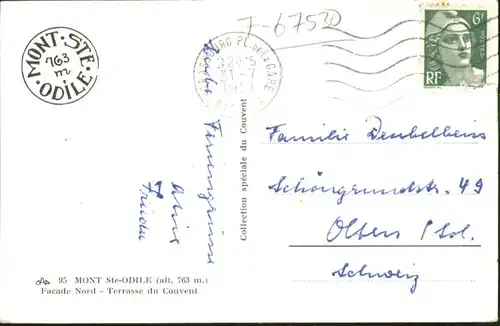 MONT • STE • ODILE •
763
m
F-67530
STRASBOURG PL. de la GARE
6F
RF
POSTES
Feriengrüsse
Collection spéciale du Couvent
Familie Deubelbeiss
Schöngrundstr. 49
Olten / Sol.
Schweiz
95 MONT Ste-ODILE (alt. 763 m.)
Facade Nord - Terrasse du Couvent